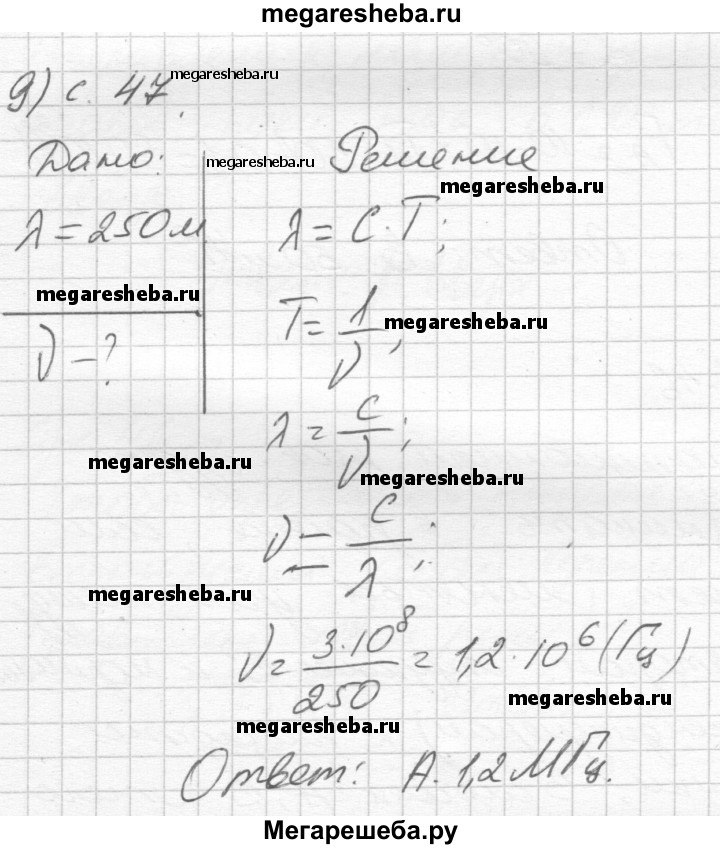 megaresheba.ru
9) с. 47.
megaresheba.ru
Дано:
megaresheba.ru
Решение
megaresheba.ru
λ = 250 м
λ = C · T;
megaresheba.ru
T = 1/ν;
megaresheba.ru
ν - ?
λ = C/ν;
megaresheba.ru
megaresheba.ru
ν = C/λ;
megaresheba.ru
ν = 3·10⁸/250 = 1,2·10⁶ (Гц)
megaresheba.ru
megaresheba.ru
Ответ: А. 1,2 МГц.
Мегарешеба.ру